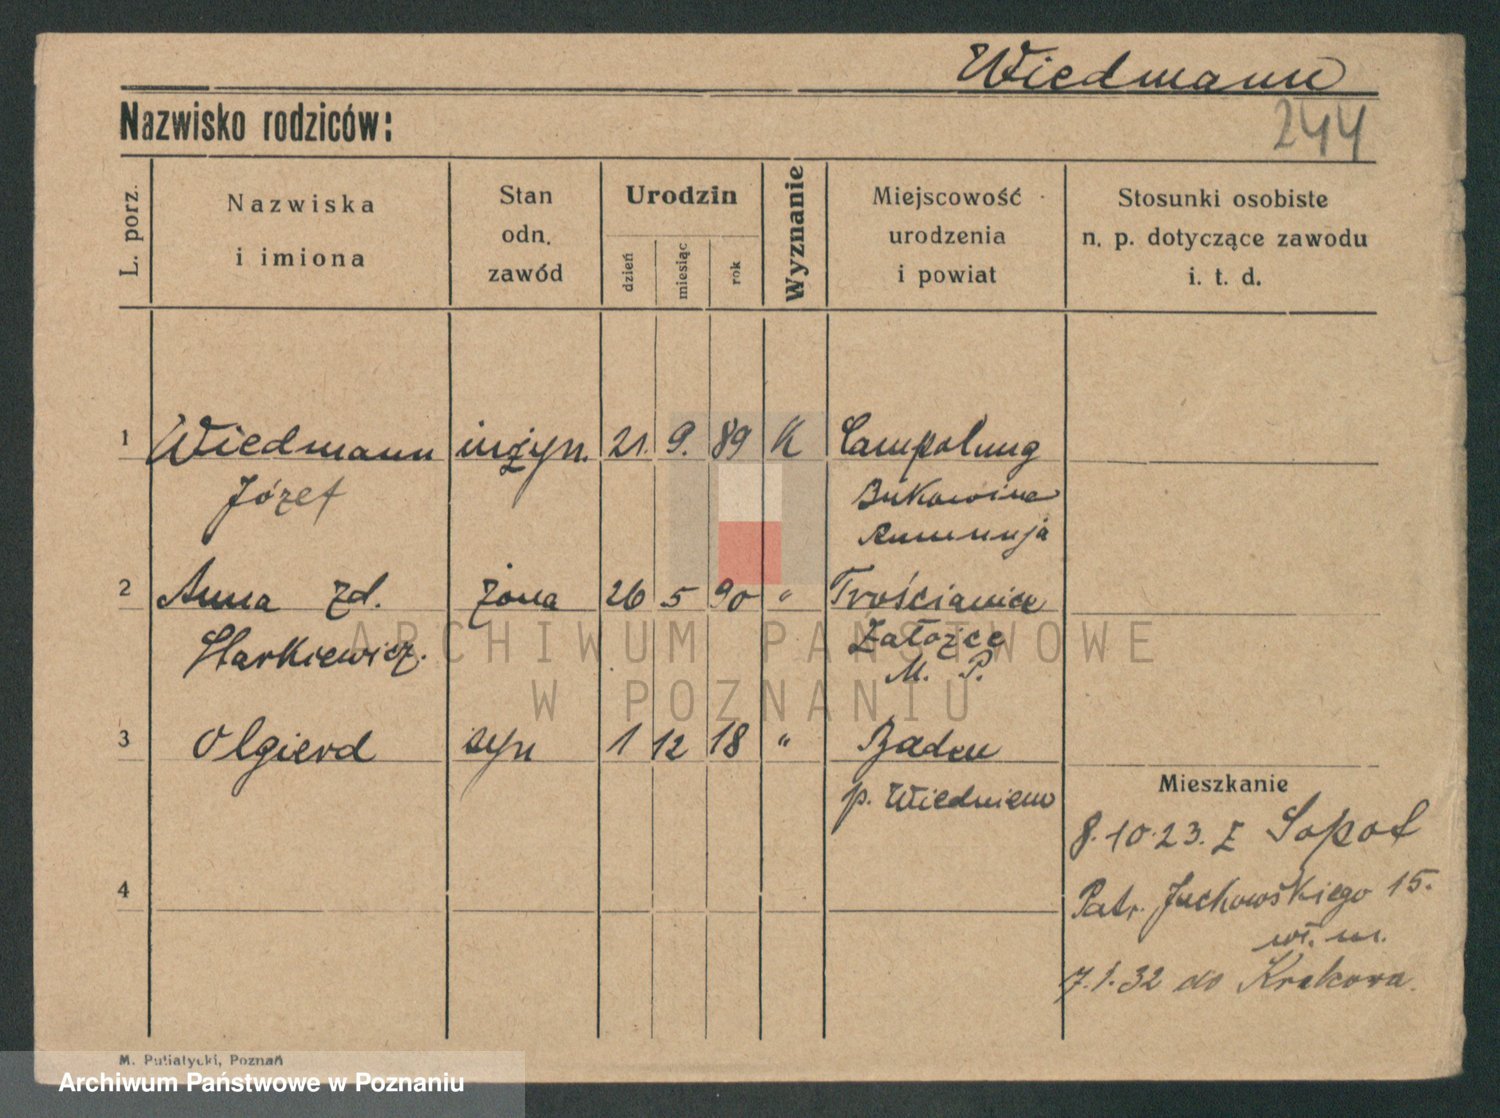 Wiedmann
244
Nazwisko rodziców:
L. porz.
Nazwiska
i imiona
Stan
odn.
zawód
Urodzin
dzień
miesiąc
rok
Wyznanie
Miejscowość
urodzenia
i powiat
Stosunki osobiste
n. p. dotyczące zawodu
i. t. d.
1 Wiedmann inżyn. 21. 9. 89 K Campolung
Józef Bukowina
Rumunja
2 Anna zd. żona 26 5 90 " Trościaniec
Starkiewicz. Załoźce
M. P.
ARCHIWUM PAŃSTWOWE
W POZNANIU
3 Olgierd syn 1 12 18 " Baden
p. Wiedniem
Mieszkanie
8.10.23. z Sopot
4
Patr. Jackowskiego 15.
wł. m.
7.1.32 do Krakowa.
M. Putiatycki, Poznań
Archiwum Państwowe w Poznaniu